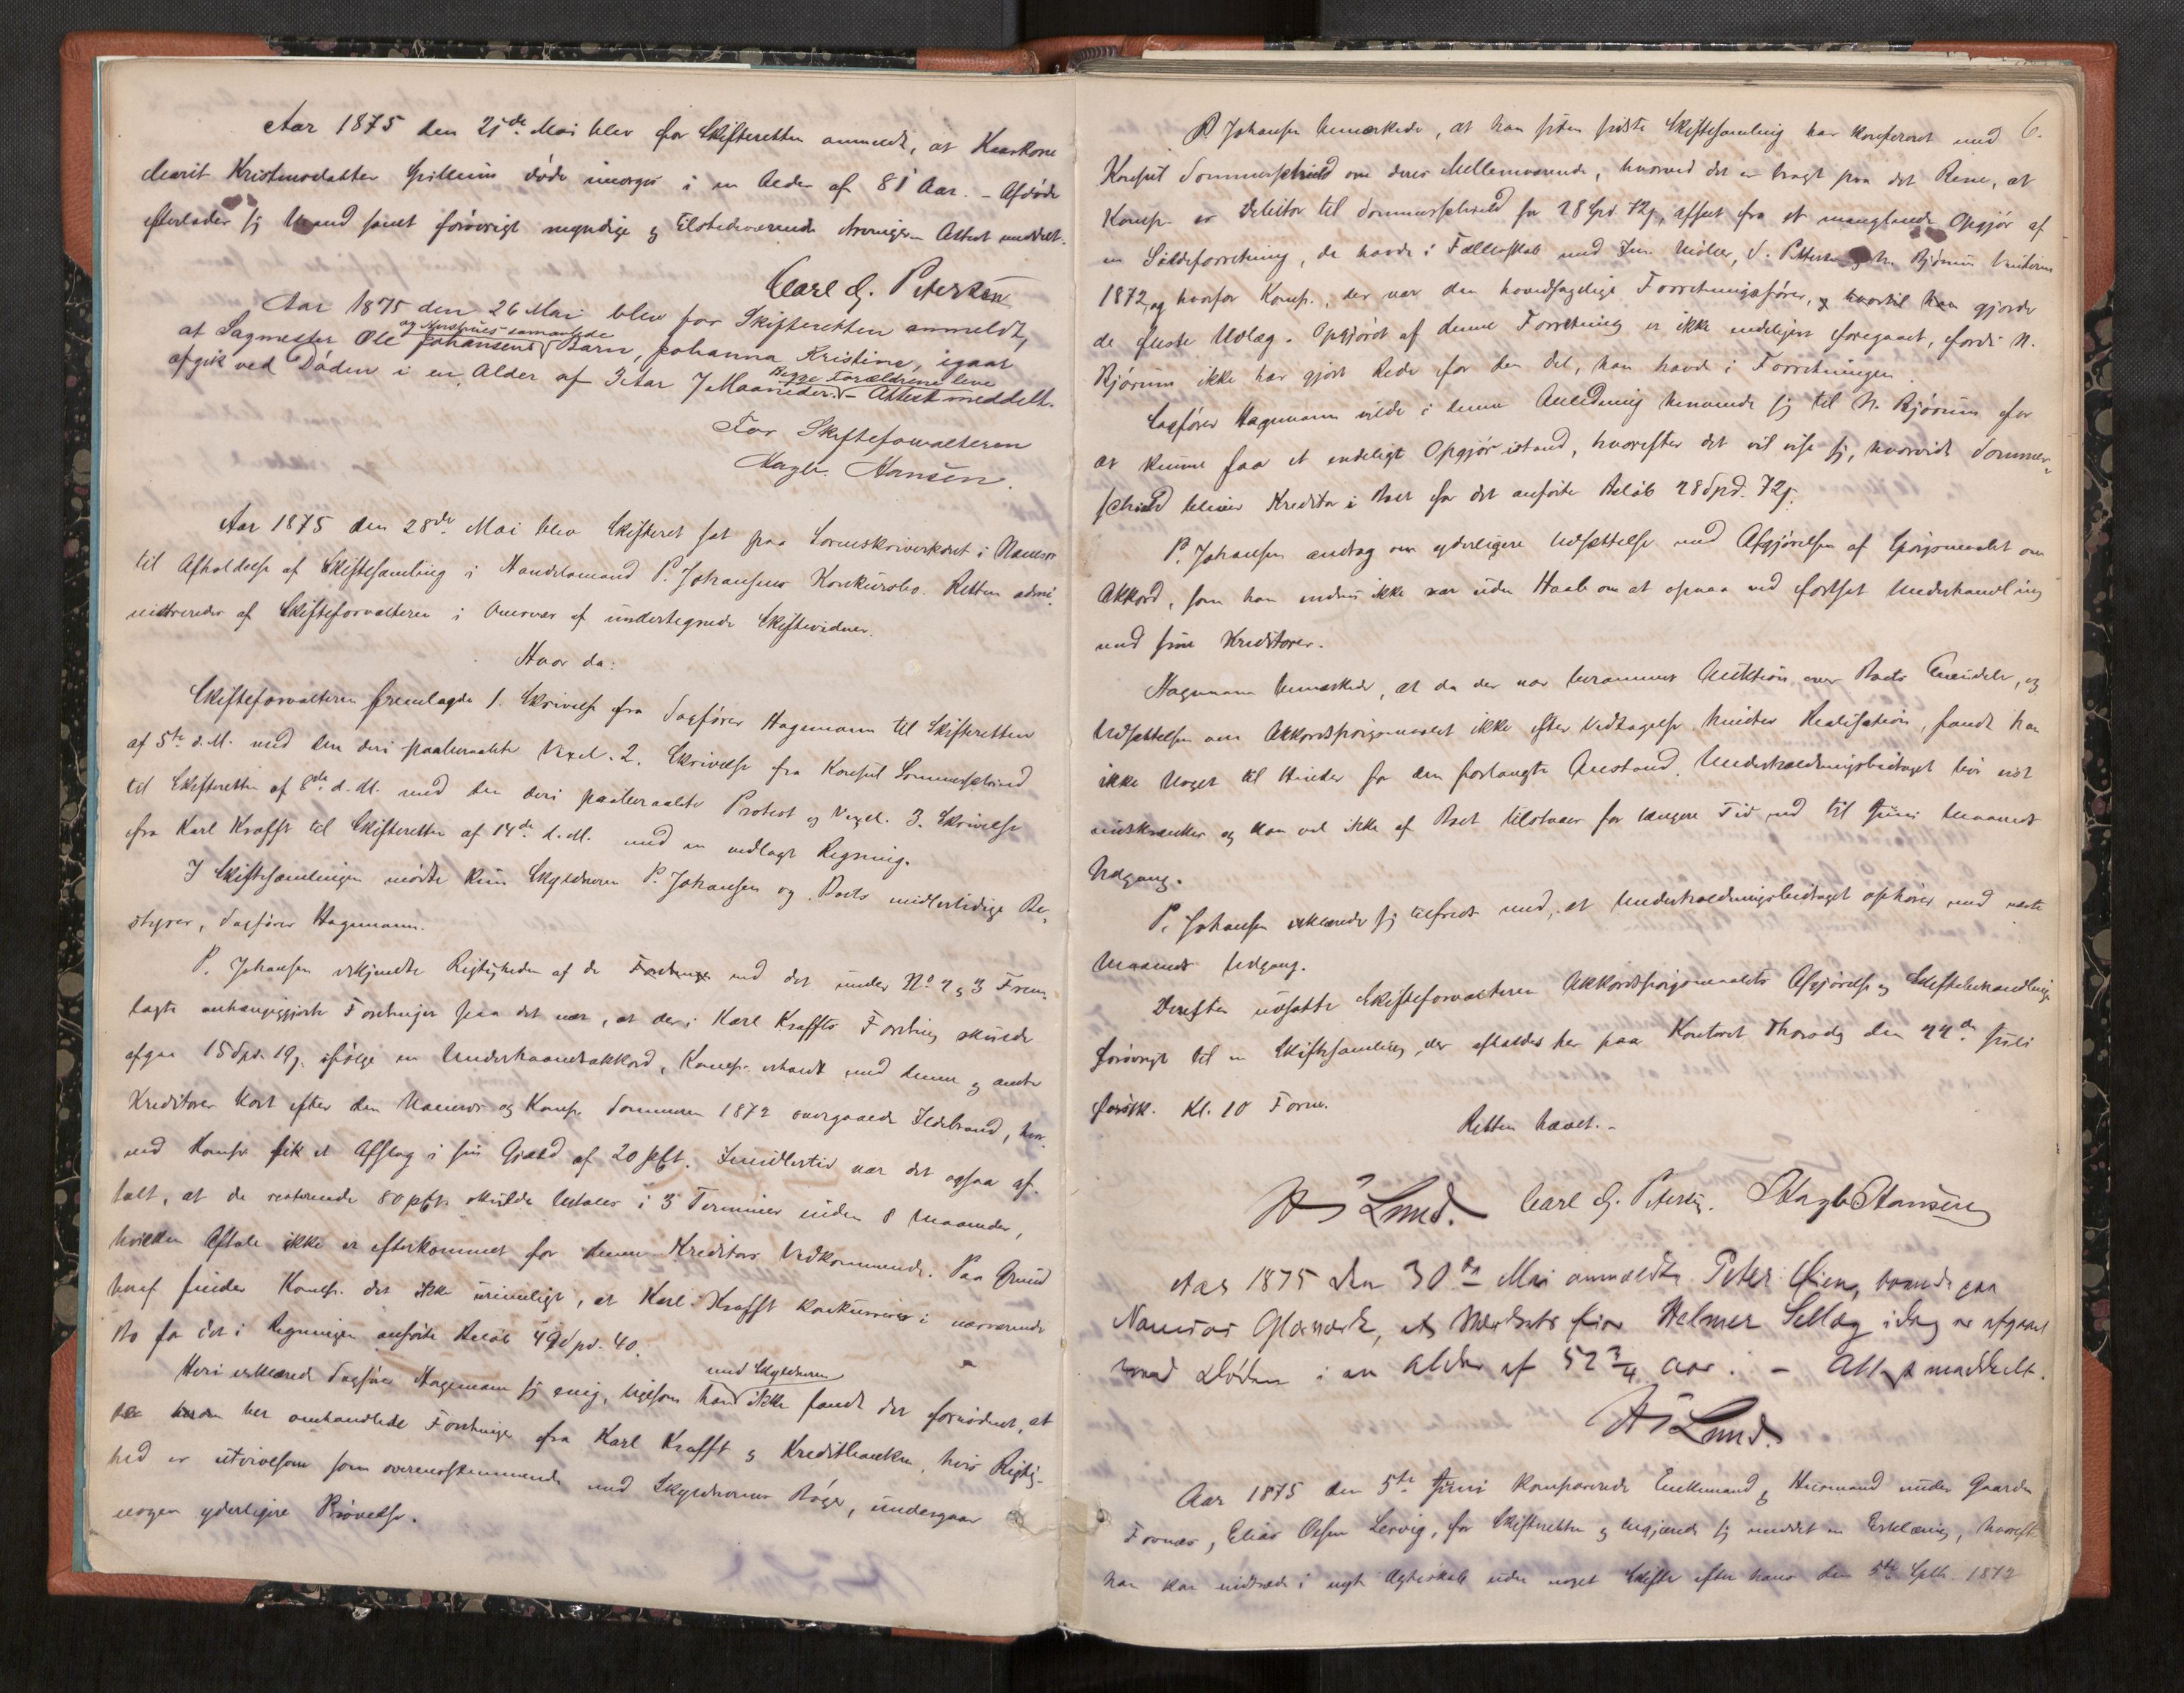 Aar 1875 den 25de Mai blev for Skifteretten anmeldt, at Kaarkone
Marit Kristensdatter Spillum døde imorges i en Alder af 81 Aar. – Afdøde
efterlader sig Mand samt forøvrigt myndige og tilstedeværende Arvinger. Attest meddelt.
Carl G. Petersen
Aar 1875 den 26 Mai blev for Skifteretten anmeldt,
at Sagmester Ole Johansens og Hustrues samavlede Barn, Johanna Kristine, igaar
afgik ved Døden i en Alder af 3 Aar 7 Maaneder. Begge Forældrene leve – Attest meddelt.
For Skifteforvalteren
Hagb. Hansen.
Aar 1875 den 28de Mai blev Skifteret sat paa Sorenskriverkont. i Namsos
til Afholdelse af Skiftesamling i Handelsmand P. Johansens Konkursbo. Retten admi-
nistreredes af Skifteforvalteren i Overvær af undertegnede Skiftevidner.
Hvor da:
Skifteforvalteren fremlagde 1. Skrivelse fra Sagfører Hagemann til Skifteretten
af 5te d. M. med den deri paaberaabte Vexel. 2. Skrivelse fra Konsul Sommerschield
til Skifteretten af 8de d. M. med den deri paaberaabte Protest og Vexel. 3. Skrivelse
fra Karl Krafft til Skifteretten af 14de d. M. med en vedlagt Regning.
I Skiftesamlingen mødte kun Skyldneren P. Johansen og Boets midlertidige Be-
styrer, Sagfører Hagemann.
P. Johansen erkjendte Rigtigheden af de ved det under No 2 og 3 Frem-
lagte anhængiggjorte Fordringer paa det nær, at der i Karl Kraffts Fordring skulde
afgaa 15 Spd. 19 ifølge en Underhaandsakkord, Komp. erholdt med denne og andre
Kreditorer kort efter den Namsos og Komp. Sommeren 1872 overgaaede Ildebrand, hvor-
ved Komp. fik et Afslag i sin Gjæld af 20 pCt. Imidlertid var det ogsaa af-
talt, at de resterende 80 pCt. skulde betales i 3 Terminer inden 8 Maaneder,
hvilken Aftale ikke er efterkommet for denne Kreditors Vedkommende. Paa Grund
heraf finder Komp. det ikke urimeligt, at Karl Krafft konkurrerer i nærværende
Bo for det i Regningen anførte Beløb 49 Spd. 40.
Heri erklærede Sagfører Hagemann sig enig, ligesom han med Skyldneren ikke fandt det fornødent, at
de her omhandlede Fordringer fra Karl Krafft og Kreditbanken, hvis Rigtig-
hed er utvivlsom som overensstemmende med Skyldnerens Bøger, undergaar
nogen yderligere Prøvelse.
6.
P. Johansen bemærkede, at han siden sidste Skiftesamling har konfereret med
Konsul Sommerschield om deres Mellemværende, hvorved det er bragt paa det Rene, at
Komp. er Debitor til Sommerschield for 28 Spd. 72, afseet fra et manglende Opgjør af
en Sildeforretning, de havde i Fællesskab med Møller, Petersen og N. Bjørum Vinteren
1872, og hvorfor Komp., der var den hovedsagelige Forretningsfører, og hvortil han gjorde
de fleste Udlæg. Opgjøret af denne Forretning er ikke endeligen foregaaet, fordi N.
Bjørum ikke har gjort Rede for den Del, han havde i Forretningen.
Sagfører Hagemann vilde i denne Anledning henvende sig til N. Bjørum for
at kunne faa et endeligt Opgjør istand, hvorefter det vil vise sig, hvorvidt Sommer-
schield bliver Kreditor i Boet for det anførte Beløb 28 Spd. 72.
P. Johansen androg om yderligere Udsættelse med Afgjørelsen af Spørgsmaalet om
Akkord, som han endnu ikke var uden Haab om at opnaa ved fortsat Underhandling
med sine Kreditorer.
Hagemann bemærkede, at da der var berammet Auktion over Boets Eiendele, og
Udsættelsen om Akkordspørgsmaalet ikke efter Vedtagelse hindrer Realisation, fandt han
ikke Noget til Hinder for den forlangte Anstand. Underholdningsbidraget bør vist
indskrænkes og kan vel ikke af Boet tilstaaes for længere Tid end til Juni Maaneds
Udgang.
P. Johansen erklærede sig tilfreds med, at Underholdningsbidraget ophører med næste
Maaneds Udgang.
Derefter udsatte Skifteforvalteren Akkordspørgsmaalets Afgjørelse og Skiftebehandlingen
forøvrigt til en Skiftesamling, der afholdes her paa Kontoret Thorsdag den 22de Juli
førstk. Kl. 10 Form.
Retten hævet. –
Lund. Carl G. Petersen. Hagb Hansen
Aar 1875 den 30te Mai anmeldte Peter Øien, boende paa
Namsos Glasværk, at Helmer Sellæg idag er afgaaet
ved Døden i en Alder af 52 3/4 Aar. – Attest meddeelt.
Lund.
Aar 1875 den 5te Juni komparerede Enkemand og Huusmand under Gaarden
Fornes, Elias Olsen Lervig, for Skifteretten og begjærede sig meddelt en Erklæring, hvorefter
han kan indtræde i nyt Ægteskab uden noget Skifte efter hans den 5te Septb. 1872